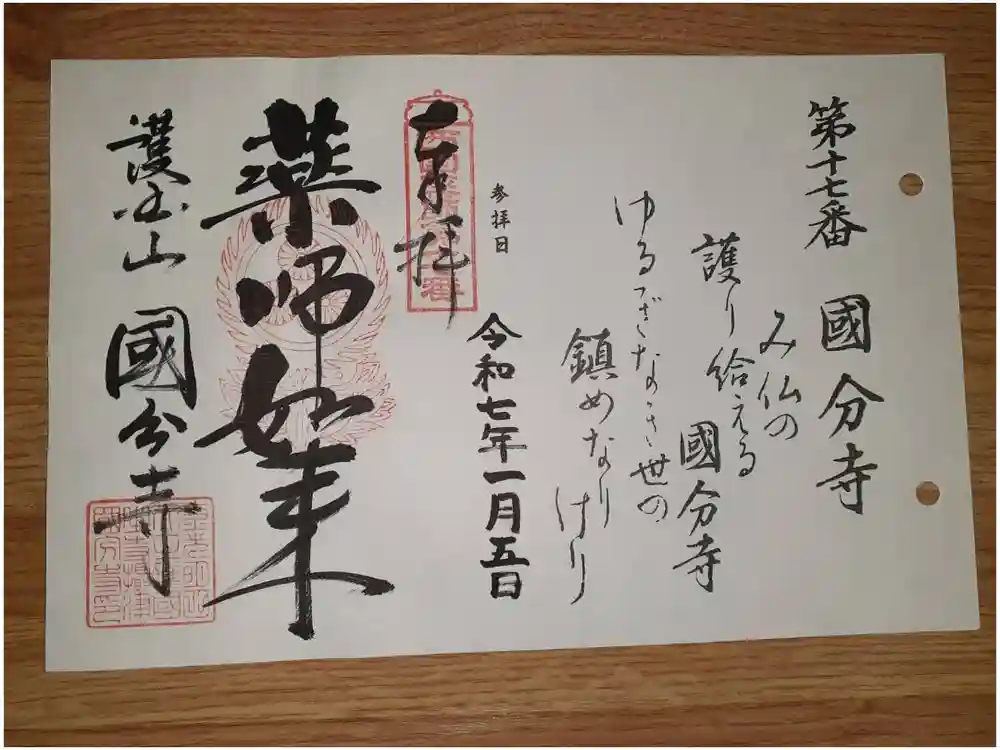 第十七番 國分寺
み仏の
護り給える 國分寺
ゆるぎなき世の
鎮めなりけり
参拝日
令和七年一月五日
奉拝
薬師如来
護国山 國分寺